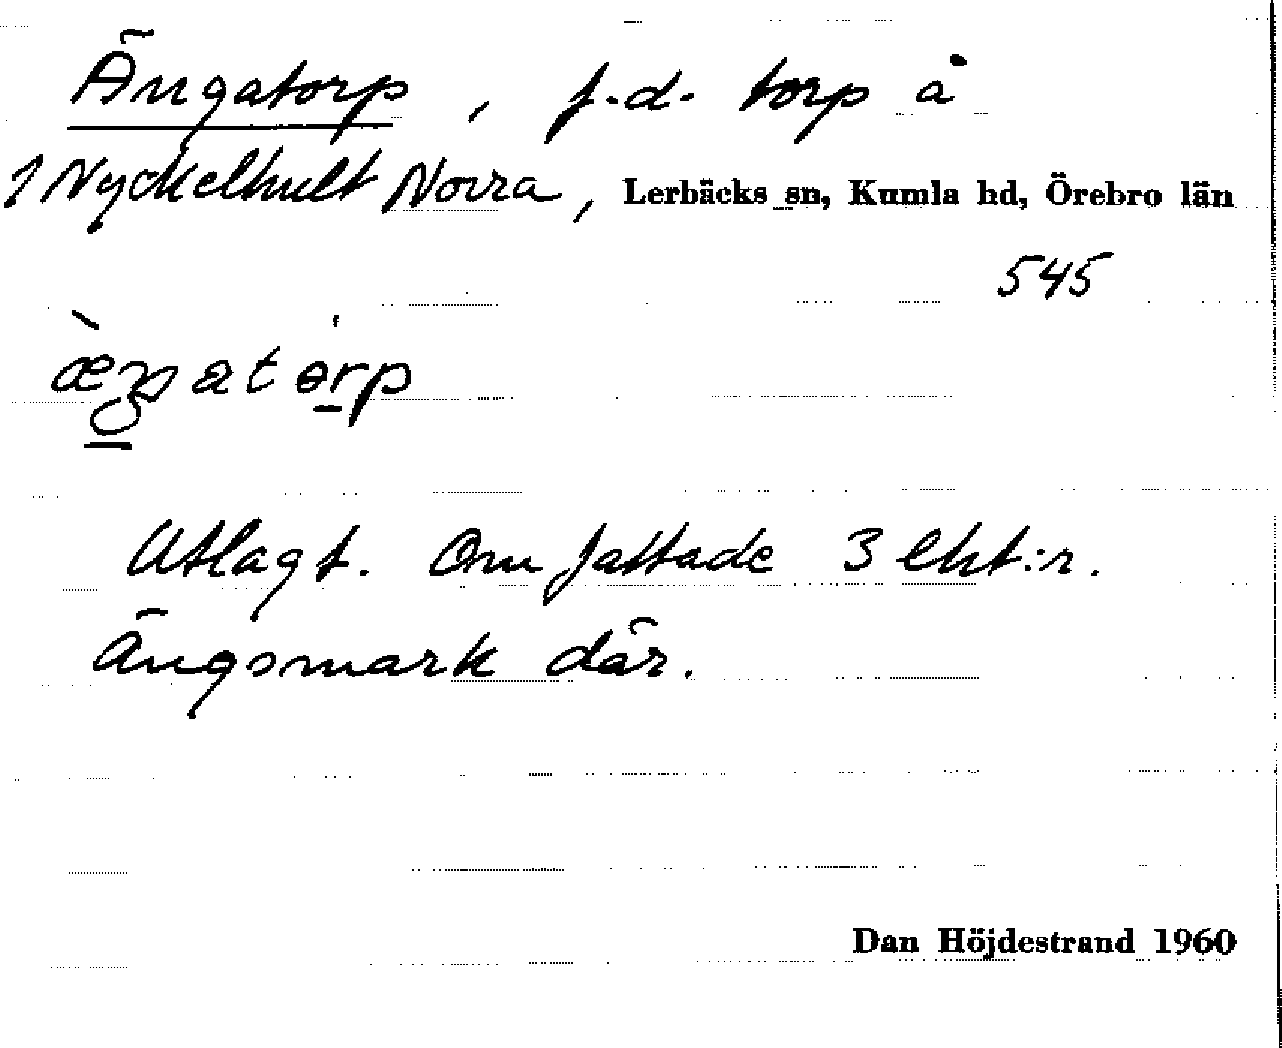 Ängatorp, f.d. torp å
1 Nyckelhult Norra, Lerbäcks sn, Kumla hd, Örebro län
545
Utlagt. Omfattade 3 ekt:r.
Ängsmark där.
Dan Höjdestrand 1960